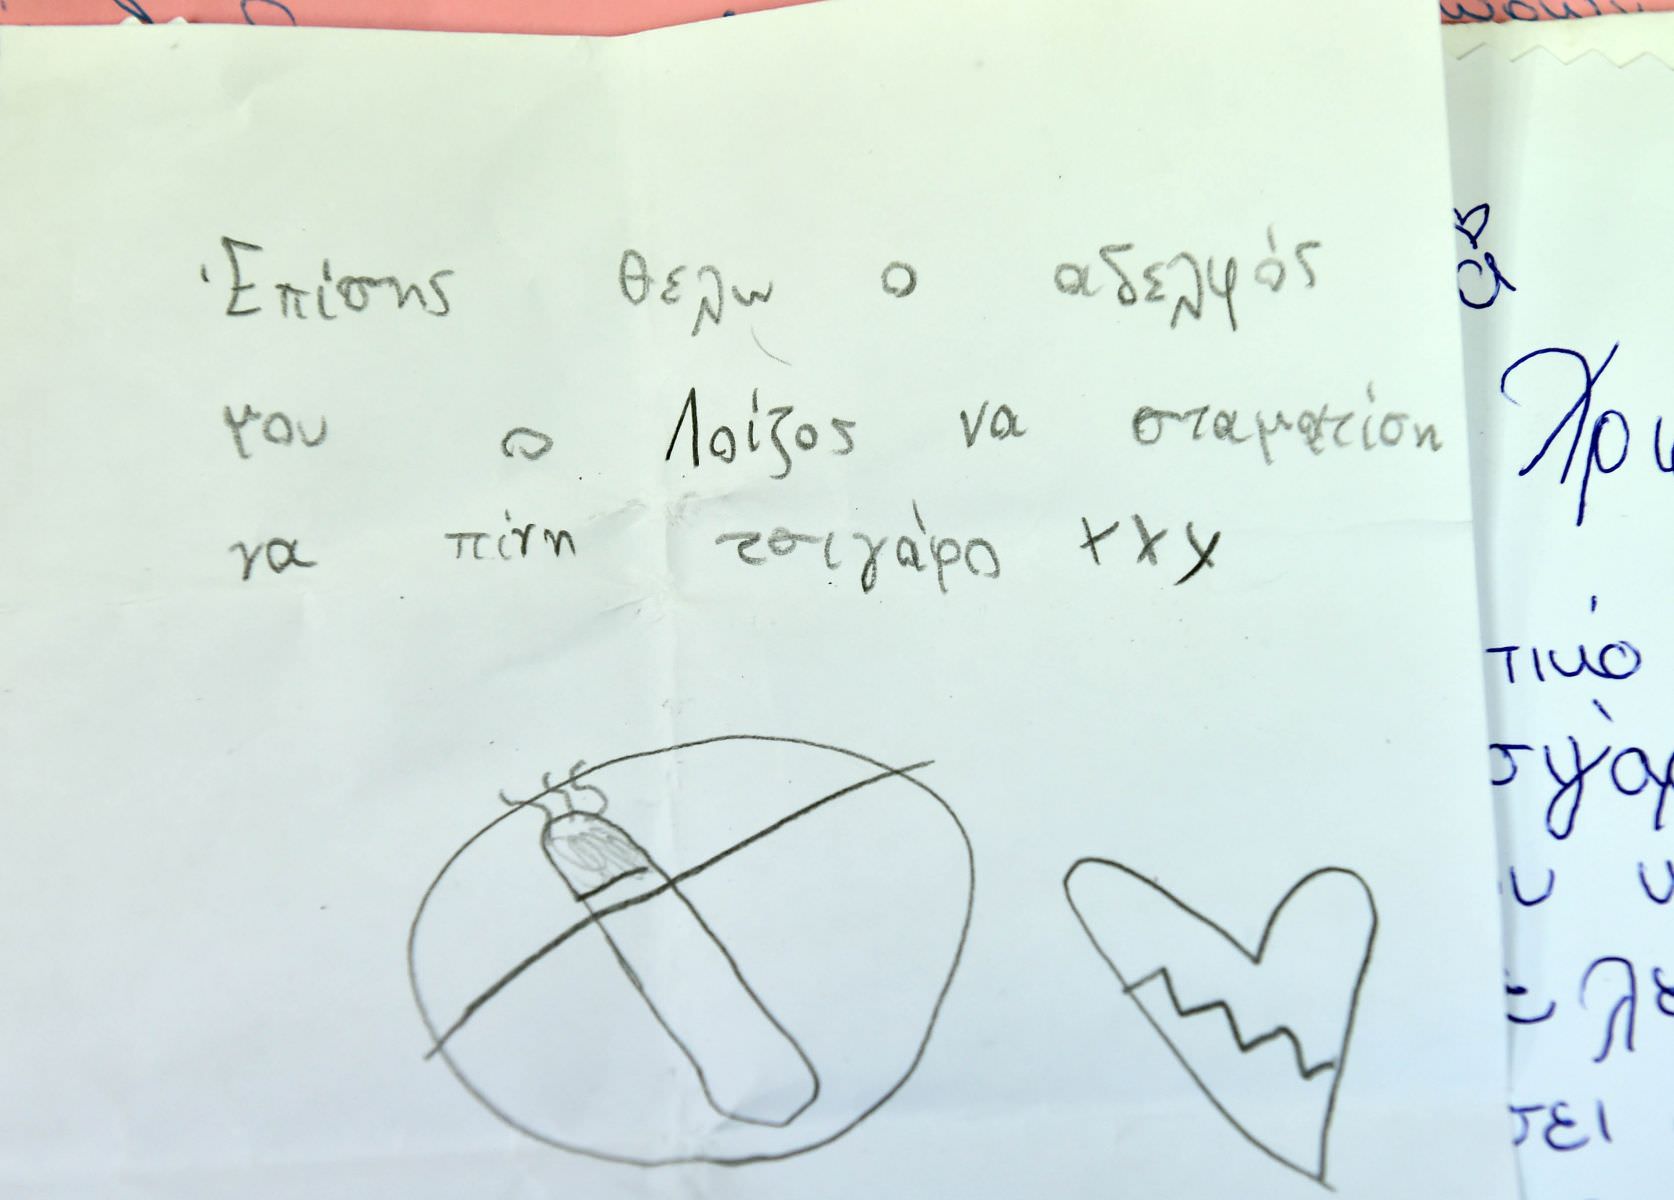 Έπίσης θελω ο αδελφός
μου ο Λοίζος να σταματίση
να πίνη τσιγάρο xxx
τικό
λε
σει